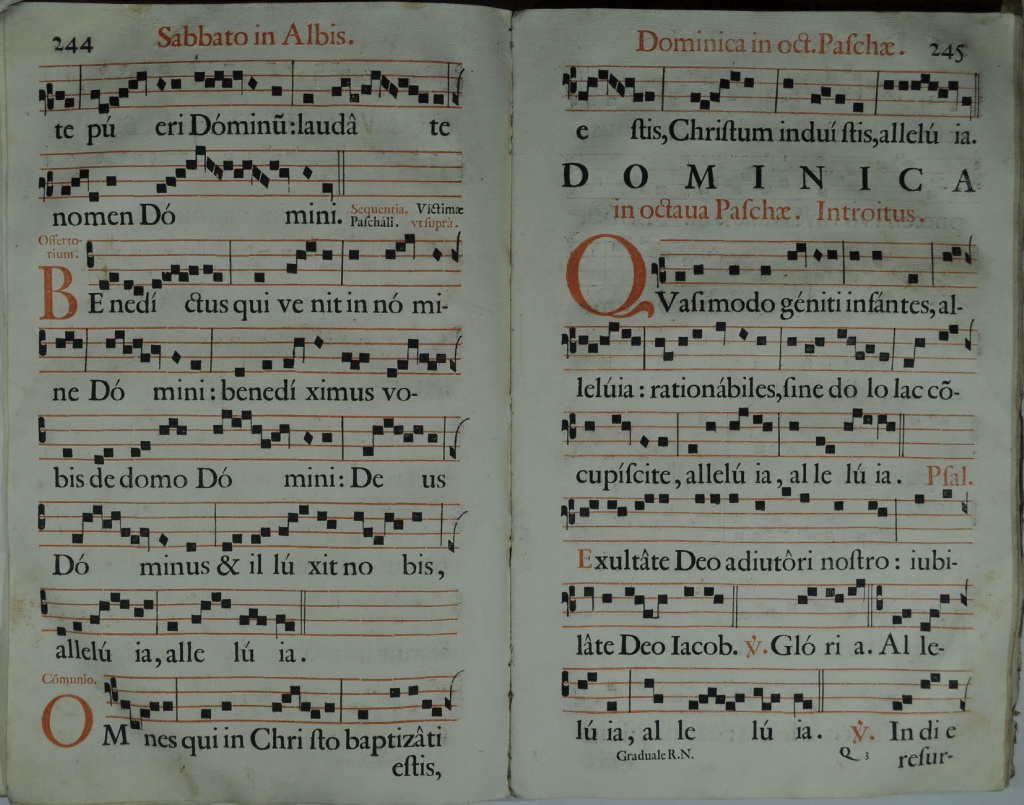 244 Sabbato in Albis.
te pú eri Dóminũ: laudâ te
nomen Dó mini. Sequentia. Victimæ
Paſcháli. vt ſupra.
Offerto-
rium.
BE nedí ctus qui ve nit in nó mi-
ne Dó mini: benedí ximus vo-
bis de domo Dó mini: De us
Dó minus & il lú xit no bis,
allelú ia, alle lú ia.
Cõmunio.
OM nes qui in Chri ſto baptizâti
eſtis,
Dominica in oct. Paſchæ. 245
e ſtis, Chriſtum induí ſtis, allelú ia.
DOMINICA
in octaua Paſchæ. Introitus.
QVaſimodo géniti infántes, al-
lelúia: rationábiles, ſine do lo lac cõ-
cupíſcite, allelú ia, al le lú ia. Pſal.
Exultâte Deo adiutôri noſtro: iubi-
lâte Deo Iacob. ℣. Gló ri a. Al le-
lú ia, al le lú ia. ℣. In di e
Graduale R.N. Q 3 reſur-